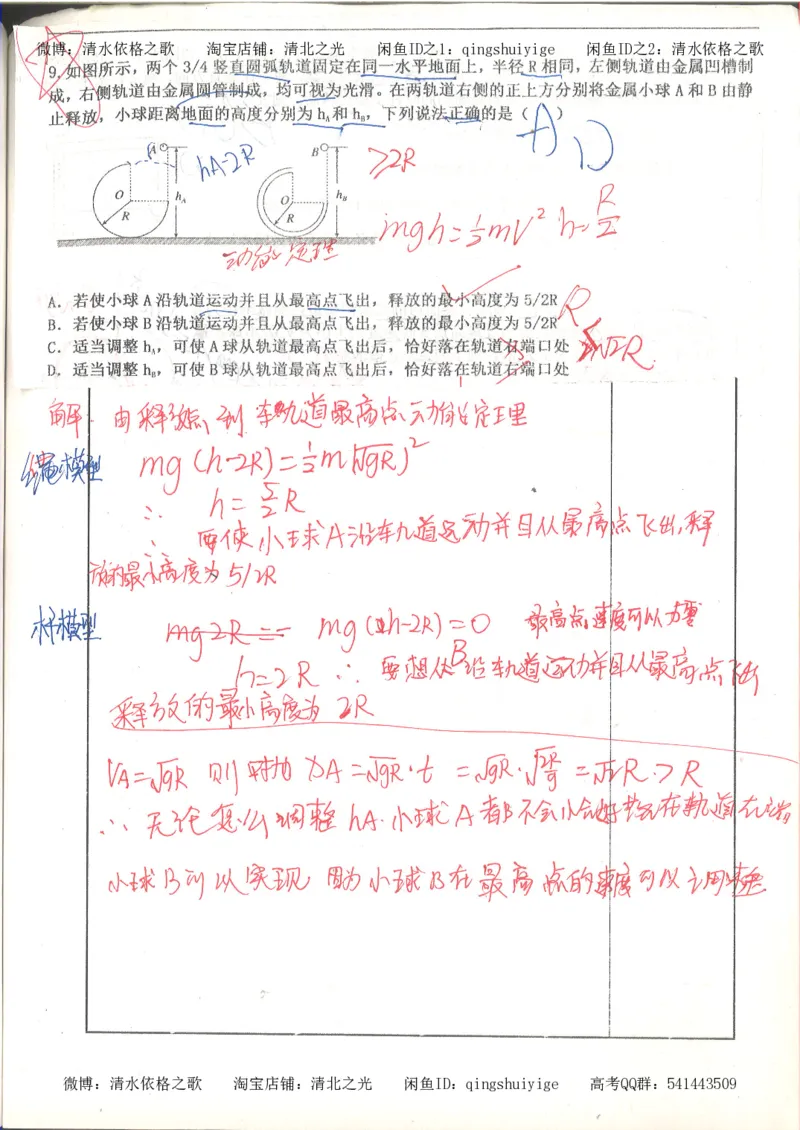 微博：清水依格之歌 淘宝店铺：清北之光 闲鱼ID之1：qingshuiyige 闲鱼ID之2：清水依格之歌
9.如图所示，两个 3/4 竖直圆弧轨道固定在同一水平地面上，半径 R 相同，左侧轨道由金属凹槽制
成，右侧轨道由金属圆管制成，均可视为光滑。在两轨道右侧的正上方分别将金属小球 A 和 B 由静
止释放，小球距离地面的高度分别为 hA 和 hB，下列说法正确的是（ ）
AD
A hA-2R B ≥2R
O hA O hB
R R
mgh=½mv² h=R/2
动能定理
A．若使小球 A 沿轨道运动并且从最高点飞出，释放的最小高度为 5/2R
B．若使小球 B 沿轨道运动并且从最高点飞出，释放的最小高度为 5/2R
C．适当调整 hA，可使 A 球从轨道最高点飞出后，恰好落在轨道右端口处
D．适当调整 hB，可使 B 球从轨道最高点飞出后，恰好落在轨道右端口处
R
√2R
解：由释放点到轨道最高点动能定理
绳模型 mg(h-2R)=½m(√gR)²
∴ h=5/2R
∴ 要使小球A沿轨道运动并且从最高点飞出，释
放的最小高度为 5/2R
杆模型 mg(h-2R)=0 最高点速度可以为零
h=2R ∴ 要想使B沿轨道运动并且从最高点飞出
释放的最小高度为 2R
VA=√gR 则 xA=√gR·t =√gR·√2R/g =√2R>R
∴ 无论怎么调整 hA 小球A都不会恰好落在轨道右端
小球B可以实现 因为小球B在最高点的速度可以
微博：清水依格之歌 淘宝店铺：清北之光 闲鱼ID：qingshuiyige 高考QQ群：541443509